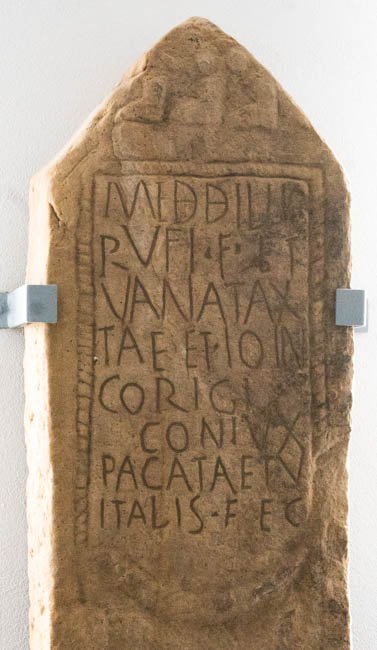 RVFI · F · ET
VANATAX
TAE ET · IOIN
CORIGI
CONIVX
PACATAETV
ITALIS · F EC